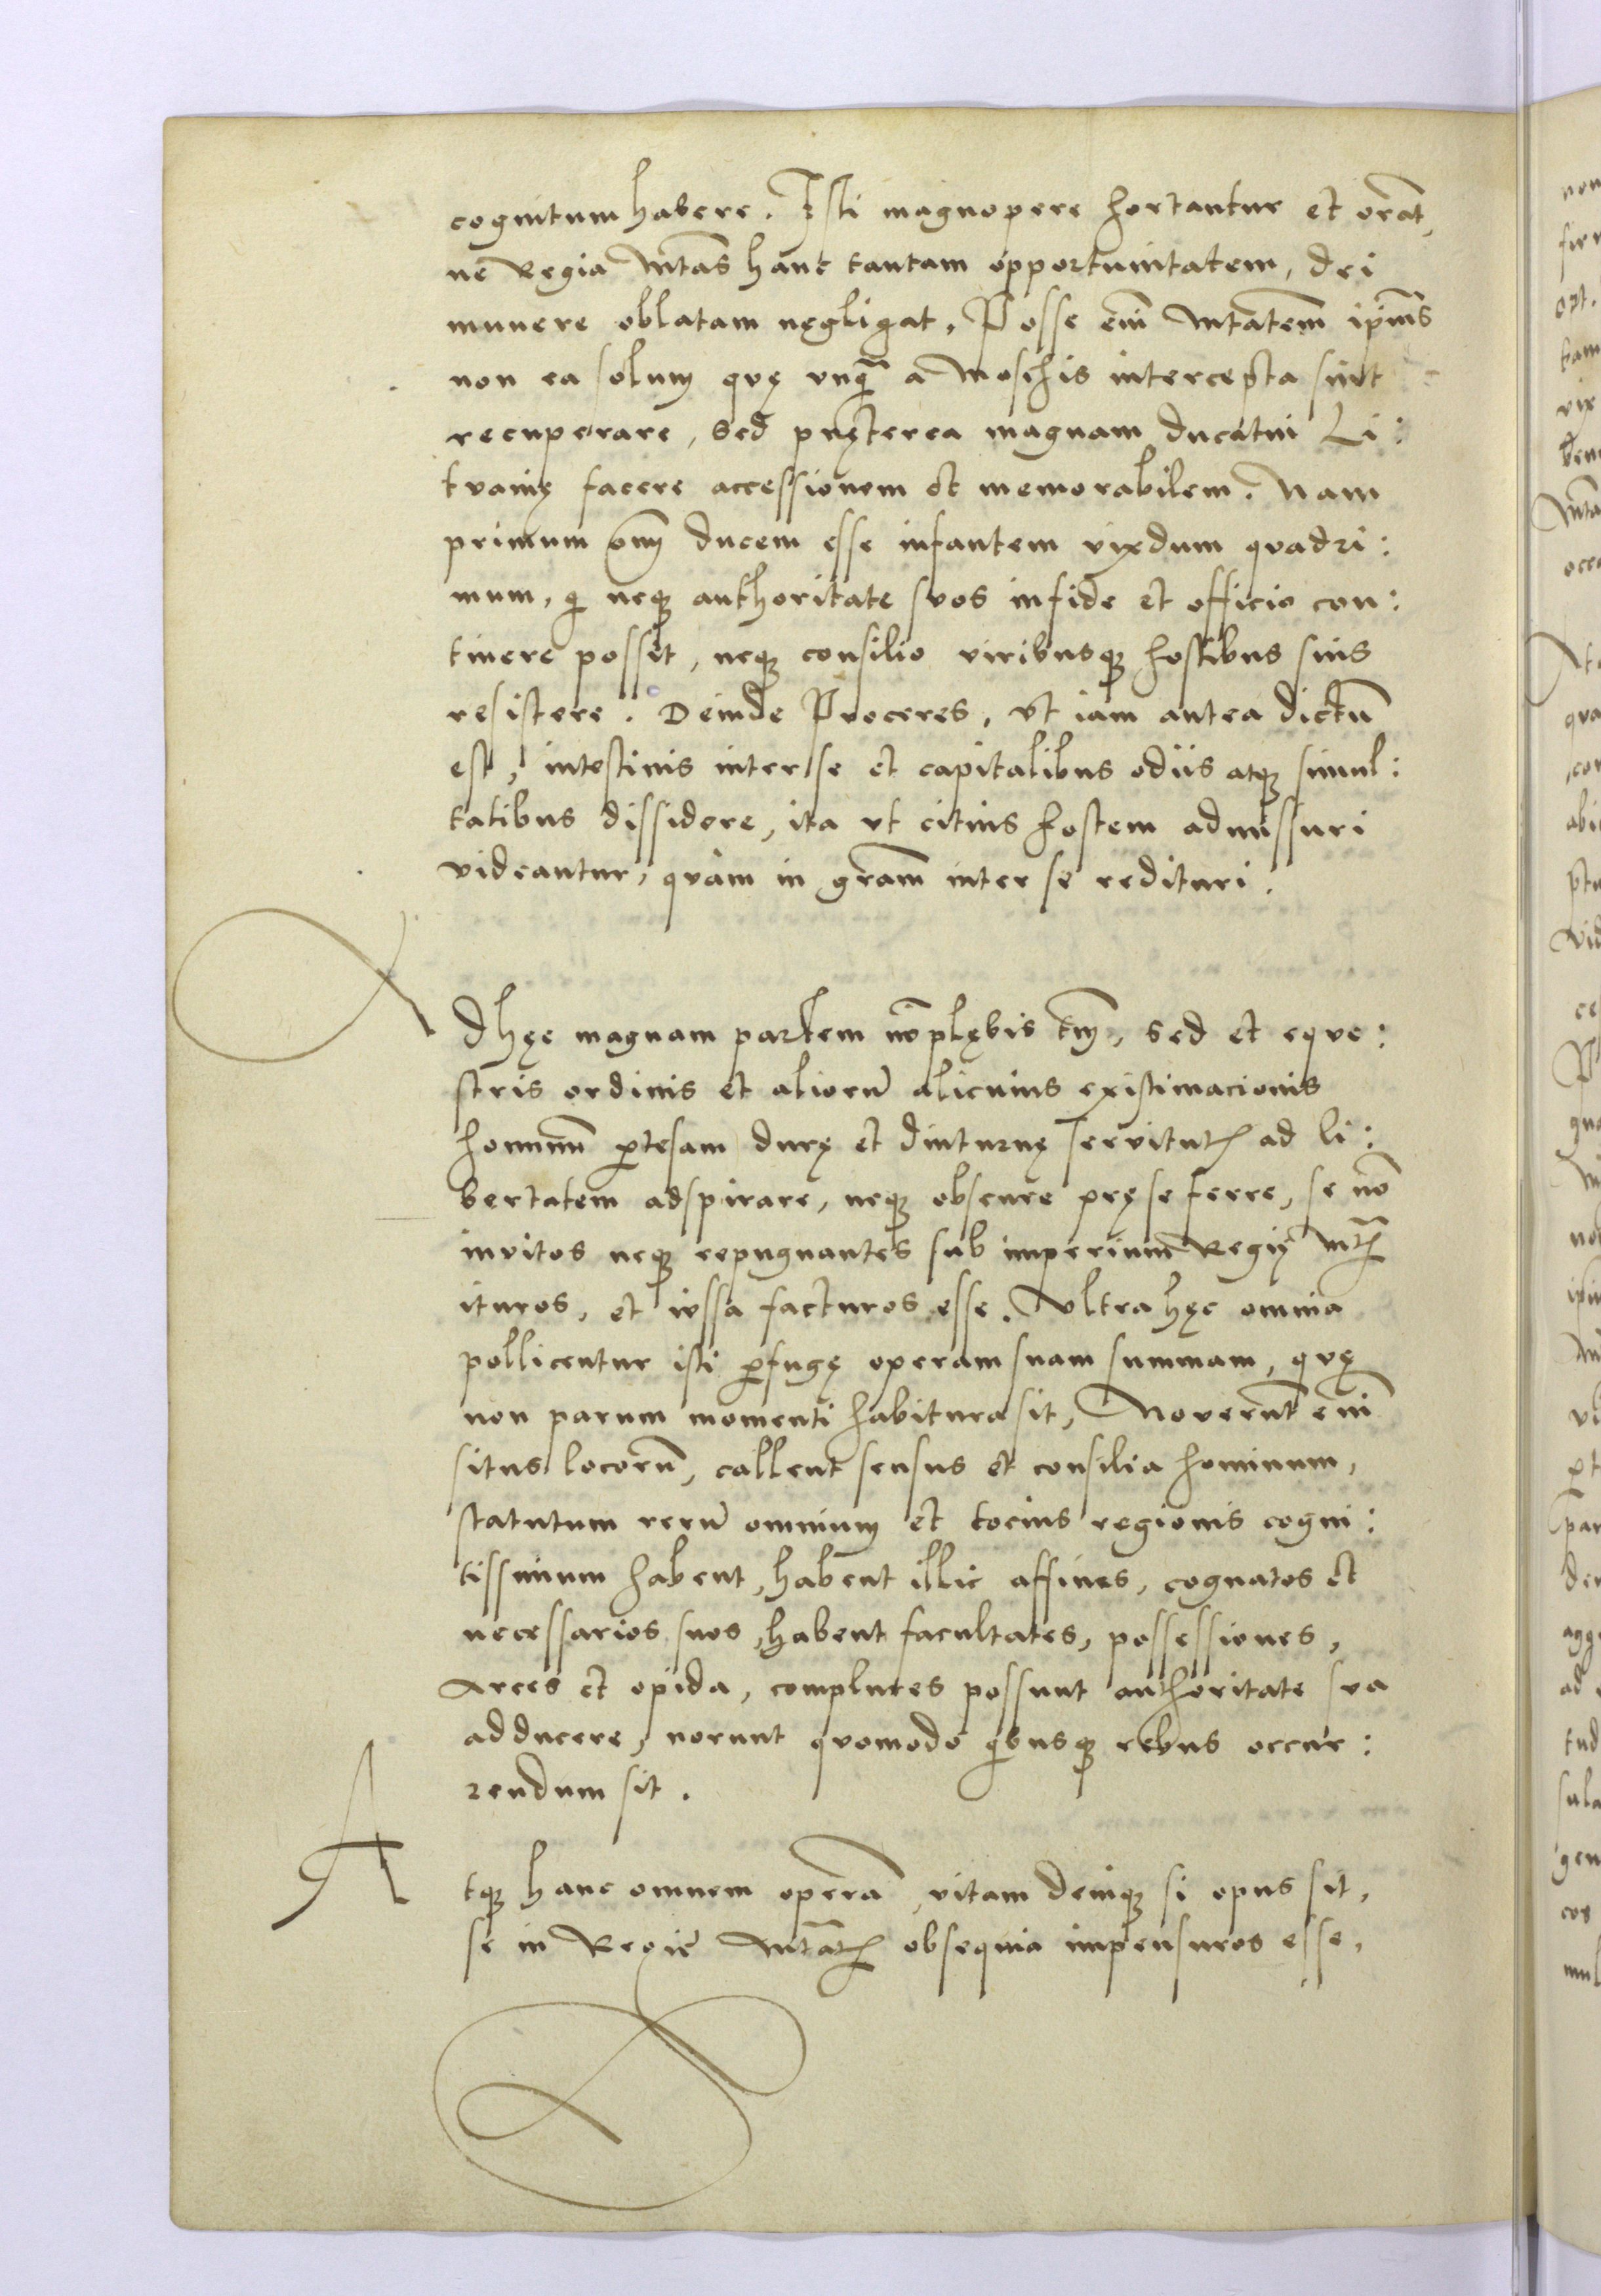 cognitum habere. Isti magnopere hortantur et orāt,
ne Regia Mtās hanc tantam opportunitatem, dei
munere oblatam negligat, Posse em̄ Mtatem ipi̅us
non ea solum quę unq̄ a Moschis intercepta sint
recuperare, sed pręterea magnam ducatui Li:
tvanię facere accessionem et memorabilem. Nam
primum om̄ ducem esse infantem vixdum quadri:
mum, qi neq; authoritate suos in fide et officio con:
tinere possit, neq; consilio viribusq; hostibus suis
resistere. Deinde Proceres, ut iam antea dictū
est, intestinis inter se et capitalibus odiis atq; simul:
tatibus dissidere, ita ut citius hostem admissuri
videantur, quàm in grām inter se redituri.
Ad hęc magnam partem nō plębis tm̄, sed et eque:
stris ordinis et aliorū alicuius existimacionis
hominū ptesam durę et diuturnę servitut; ad li:
bertatem adspirare, neq; obscure pręseferre, se nō
invitos neq; repugnantes sub imperium Regię Mt;
ituros, et iussa facturos esse. Ultra hęc omnia
pollicentur isti pfugę operam suam summam, quę
non parum momenti habitura sit, Noverūt em̄
situs locorū, callent sensus et consilia hominum,
statutum rerū omnium et tocius regionis cogni:
tissimum habent, habent illic affines, cognatos et
necessarios suos, habent facultates, possessiones,
Arces et opida, complures possunt authoritate sua
adducere, norunt quomodo qibusq; rebus occur:
rendum sit.
Atq; hanc omnem operā, vitam deniq; si opus sit,
se in Regię Mtāt; obsequia impensuros esse,